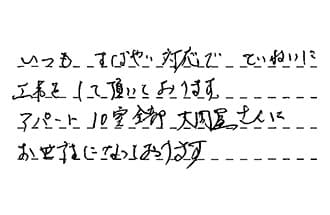 いつも すばやい対応で ていねいに
工事をして頂いております。
アパート 10室全部 大関屋さんに
お世話になっております